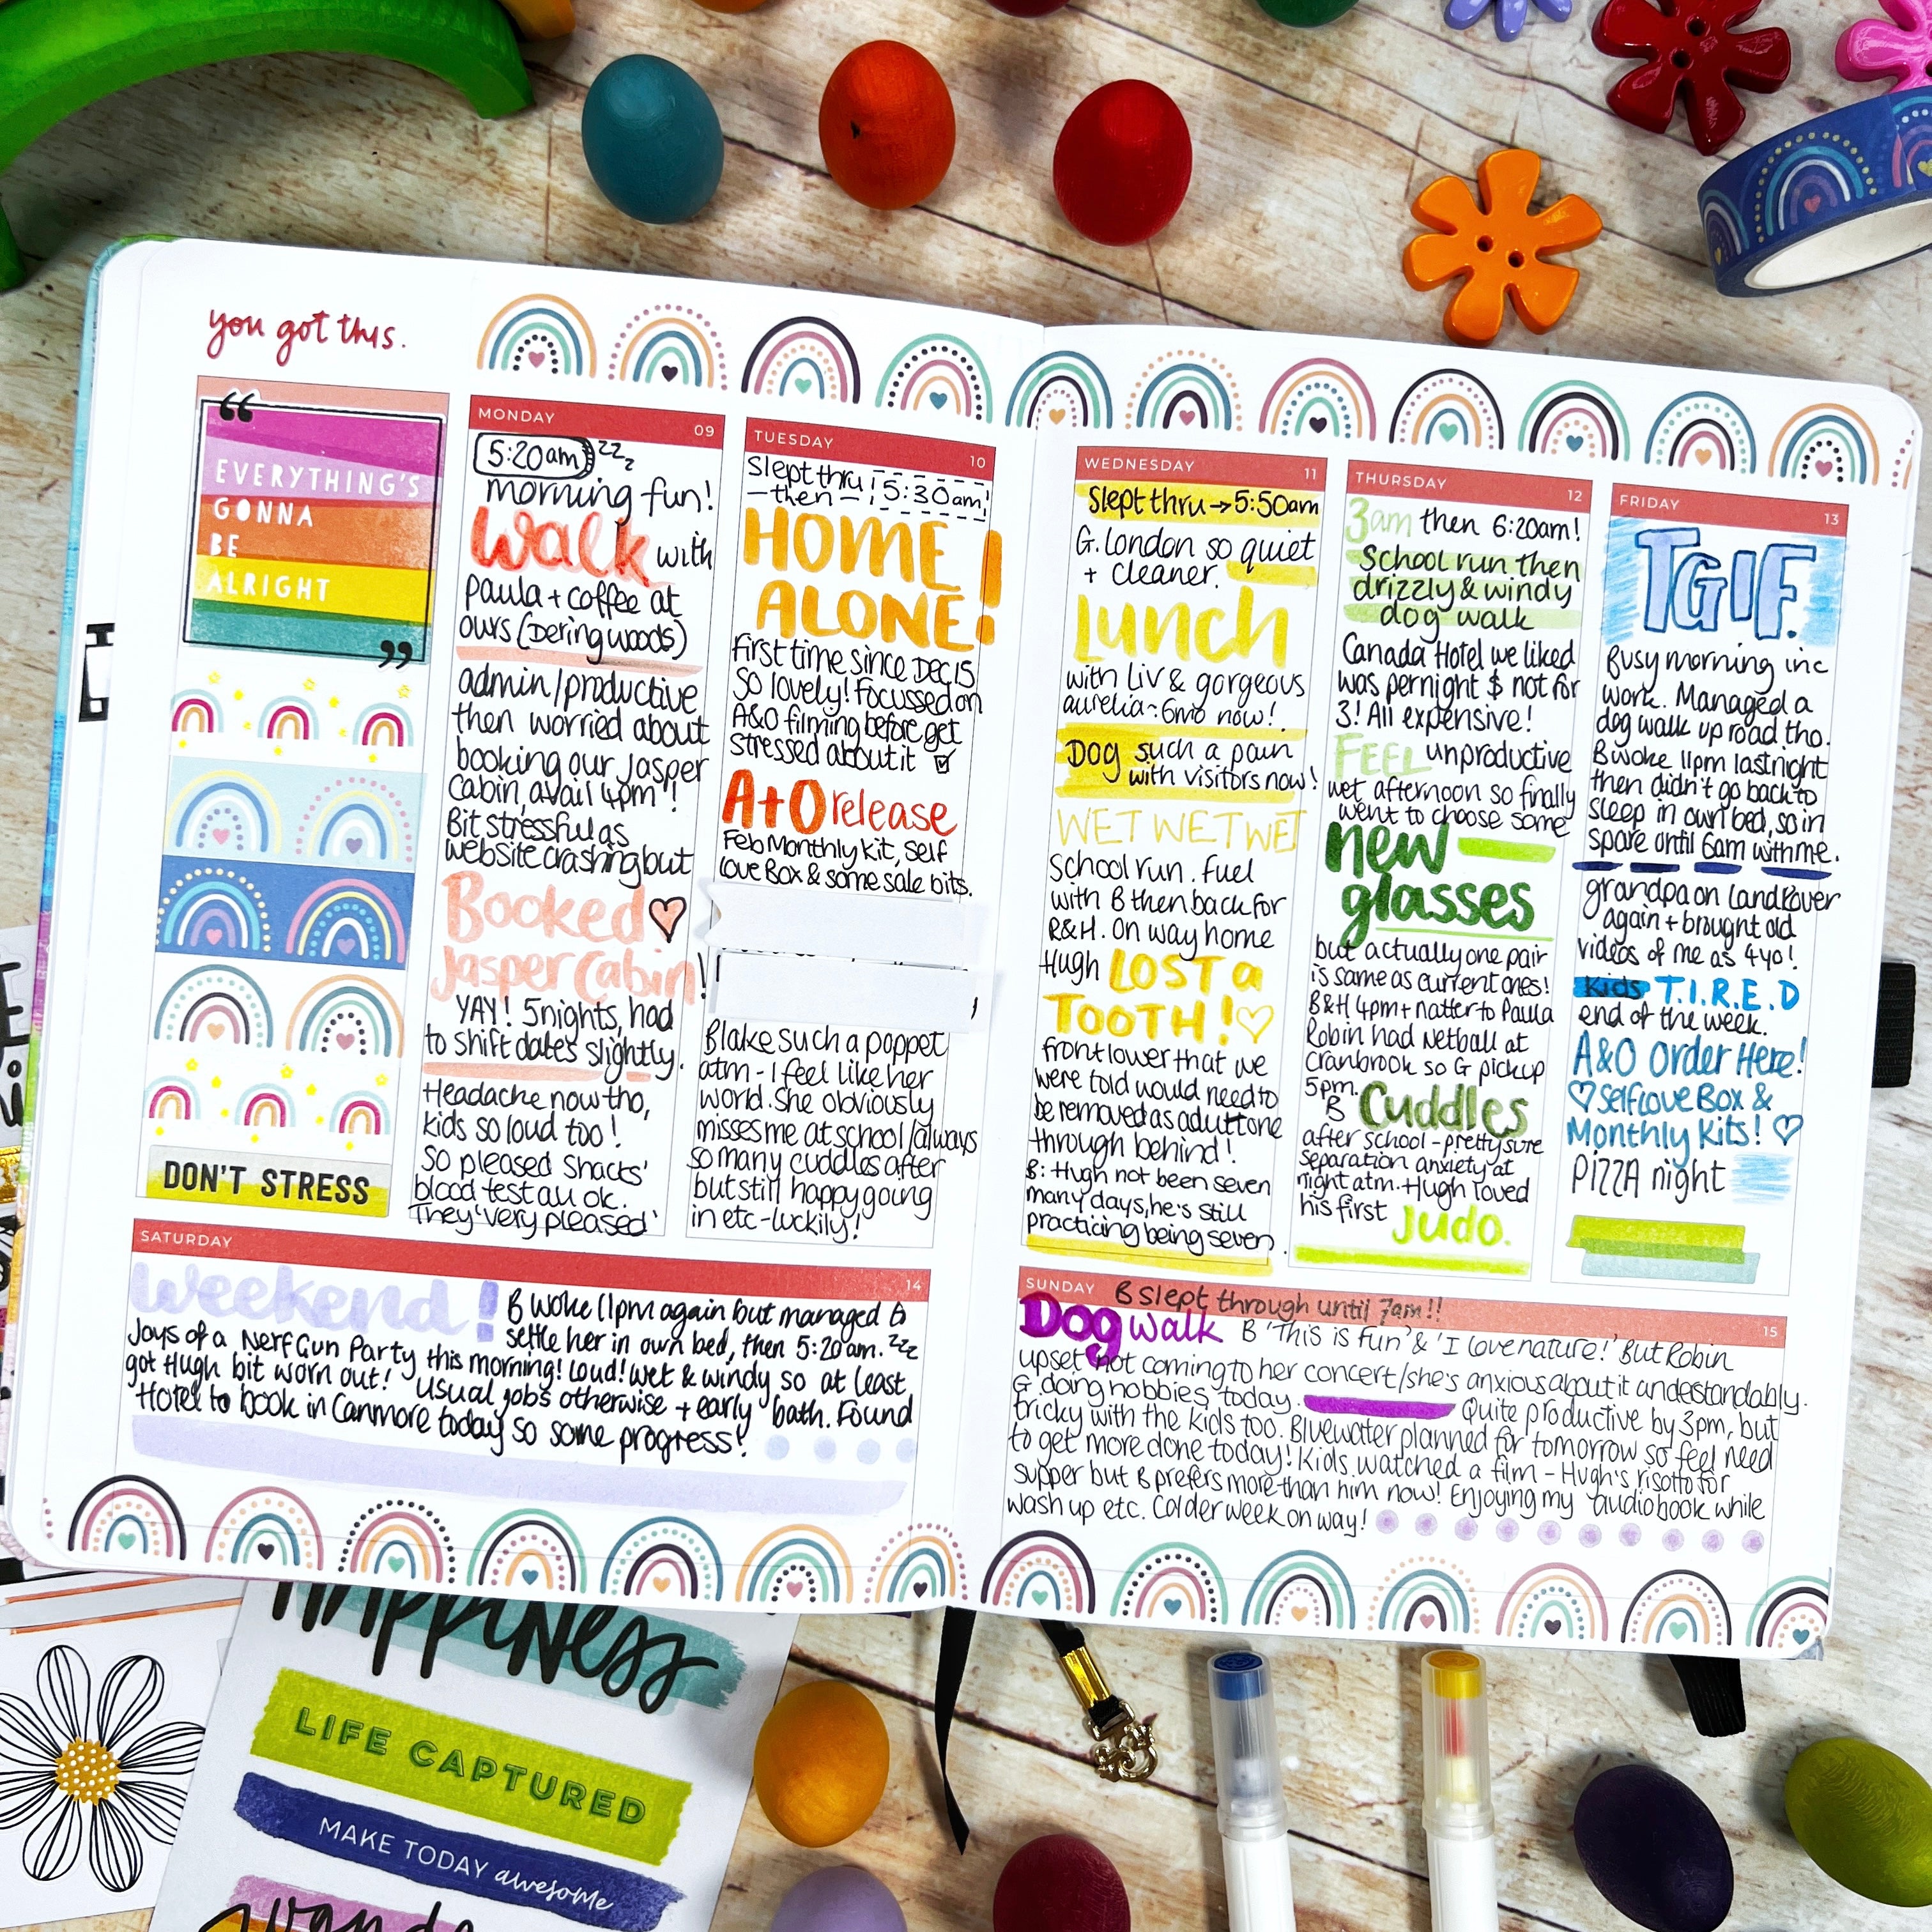 you got this.
“
EVERYTHING'S
GONNA
BE
ALRIGHT
”
DON'T STRESS
MONDAY 09
5:20am zzz
morning fun!
Walk with
Paula + coffee at
ours (Dering woods)
admin/productive
then worried about
booking our Jasper
Cabin, avail 4pm !
Bit stressful as
website crashing but
Booked
Jasper Cabin!
YAY! 5nights, had
to shift dates slightly.
Headache now tho,
kids so loud too!
So pleased Shacks'
blood test all ok.
They 'very pleased'
TUESDAY 10
Slept thru
-then- 5:30am!
HOME
ALONE!
First time since Dec 15
So lovely! Focussed on
A&O filming before get
stressed about it ☑
A+O release
Feb Monthly Kit, Self
Love Box & some sale bits.
Blake such a poppet
atm - I feel like her
world. She obviously
misses me at school/always
so many cuddles after
but still happy going
in etc - luckily!
WEDNESDAY 11
Slept thru → 5:50am
G. London so quiet
+ cleaner.
Lunch
with Liv & gorgeous
Aurelia ~ 6mo now!
Dog such a pain
with visitors now!
WET WET WET
School run. Fuel
with B then back for
R&H. On way home
Hugh LOST a
TOOTH! ♡
front lower that we
were told would need to
be removed as adult one
through behind!
B: Hugh not been seven
many days, he's still
practicing being seven.
THURSDAY 12
3am then 6:20am!
School run then
drizzly & windy
dog walk
Canada Hotel we liked
was per night $ not for
3! All expensive!
FEEL unproductive
wet afternoon so finally
went to choose some
new
glasses
but actually one pair
is same as current ones!
B&H 4pm + natter to Paula
Robin had Netball at
Cranbrook so G pickup
5pm.
B Cuddles
after school - pretty sure
separation anxiety at
night atm. Hugh loved
his first Judo.
FRIDAY 13
TGIF.
Busy morning inc
work. Managed a
dog walk up road tho.
B woke 11pm last night
then didn't go back to
sleep in own bed, so in
spare until 6am with me.
grandpa on Landrover
again + brought old
videos of me as 4yo!
Kids T.I.R.E.D
end of the week.
A&O Order Here!
♡ Selflove Box &
Monthly Kits! ♡
PIZZA night
SATURDAY 14
Weekend! B woke 11pm again but managed to
settle her in own bed, then 5:20am. zzz
Joys of a Nerf Gun Party this morning! Loud! Wet & windy so at least
got Hugh bit worn out! Usual jobs otherwise + early bath. Found
Hotel to book in Canmore today so some progress!
SUNDAY 15
B slept through until 7am!!
Dog walk B 'This is fun' & 'I love nature!' But Robin
upset not coming to her concert/she's anxious about it understandably.
G doing hobbies today. Quite productive by 3pm, but
tricky with the kids too. Bluewater planned for tomorrow so feel need
to get more done today! Kids watched a film - Hugh's risotto for
supper but B prefers more than him now! Enjoying my audiobook while
wash up etc. Colder week on way!
Happiness
LIFE CAPTURED
MAKE TODAY awesome